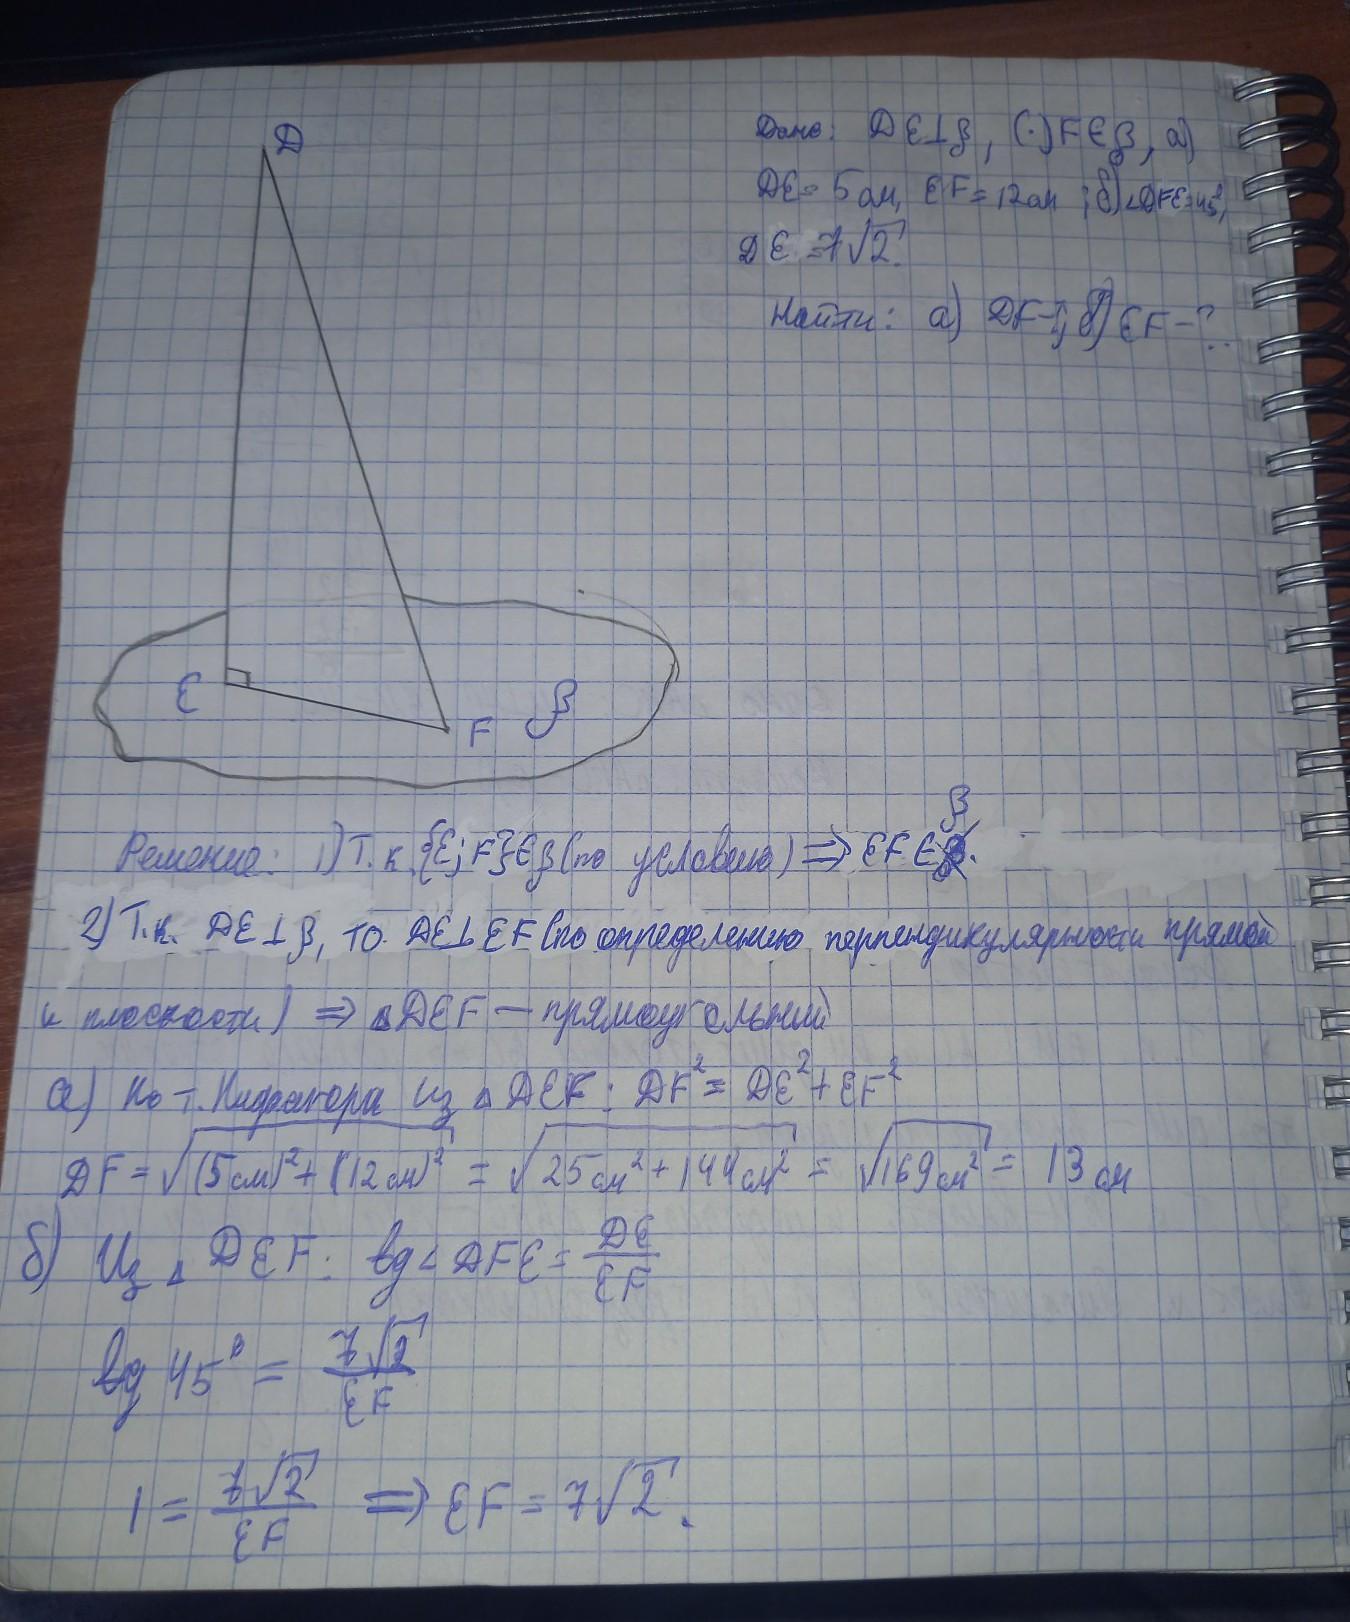 D
Дано: DE⊥β, (·)F∈β, а)
DE = 5 см, EF = 12 см ; б) ∠DFE=45°,
DE = 7√2.
Найти: а) DF-?, б) EF-?.
E
F
β
Решение: 1) Т.к. {E; F}∈β (по условию) ⇒ EF∈β.
2) Т.к. DE⊥β, то DE⊥EF (по определению перпендикулярности прямой
и плоскости) ⇒ ▵DEF — прямоугольный
а) По т. Пифагора из ▵DEF: DF² = DE² + EF²
DF = √(5см)²+(12см)² = √25см²+144см² = √169см² = 13 см
б) Из ▵DEF: tg∠DFE = DE/EF
tg 45° = 7√2/EF
1 = 7√2/EF ⇒ EF = 7√2.